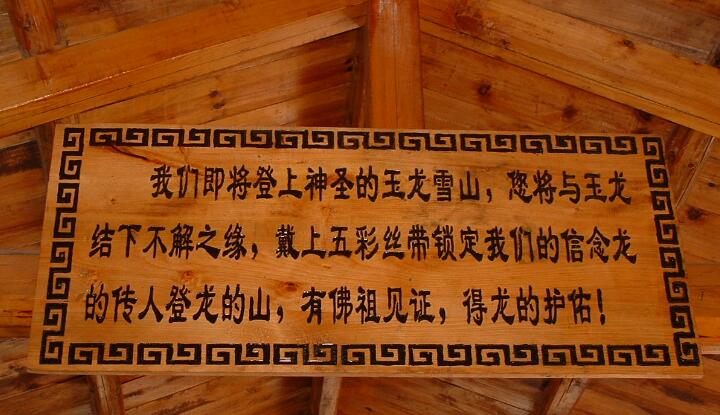 我们即将登上神圣的玉龙雪山，您将与玉龙
结下不解之缘，戴上五彩丝带锁定我们的信念龙
的传人登龙的山，有佛祖见证，得龙的护佑！